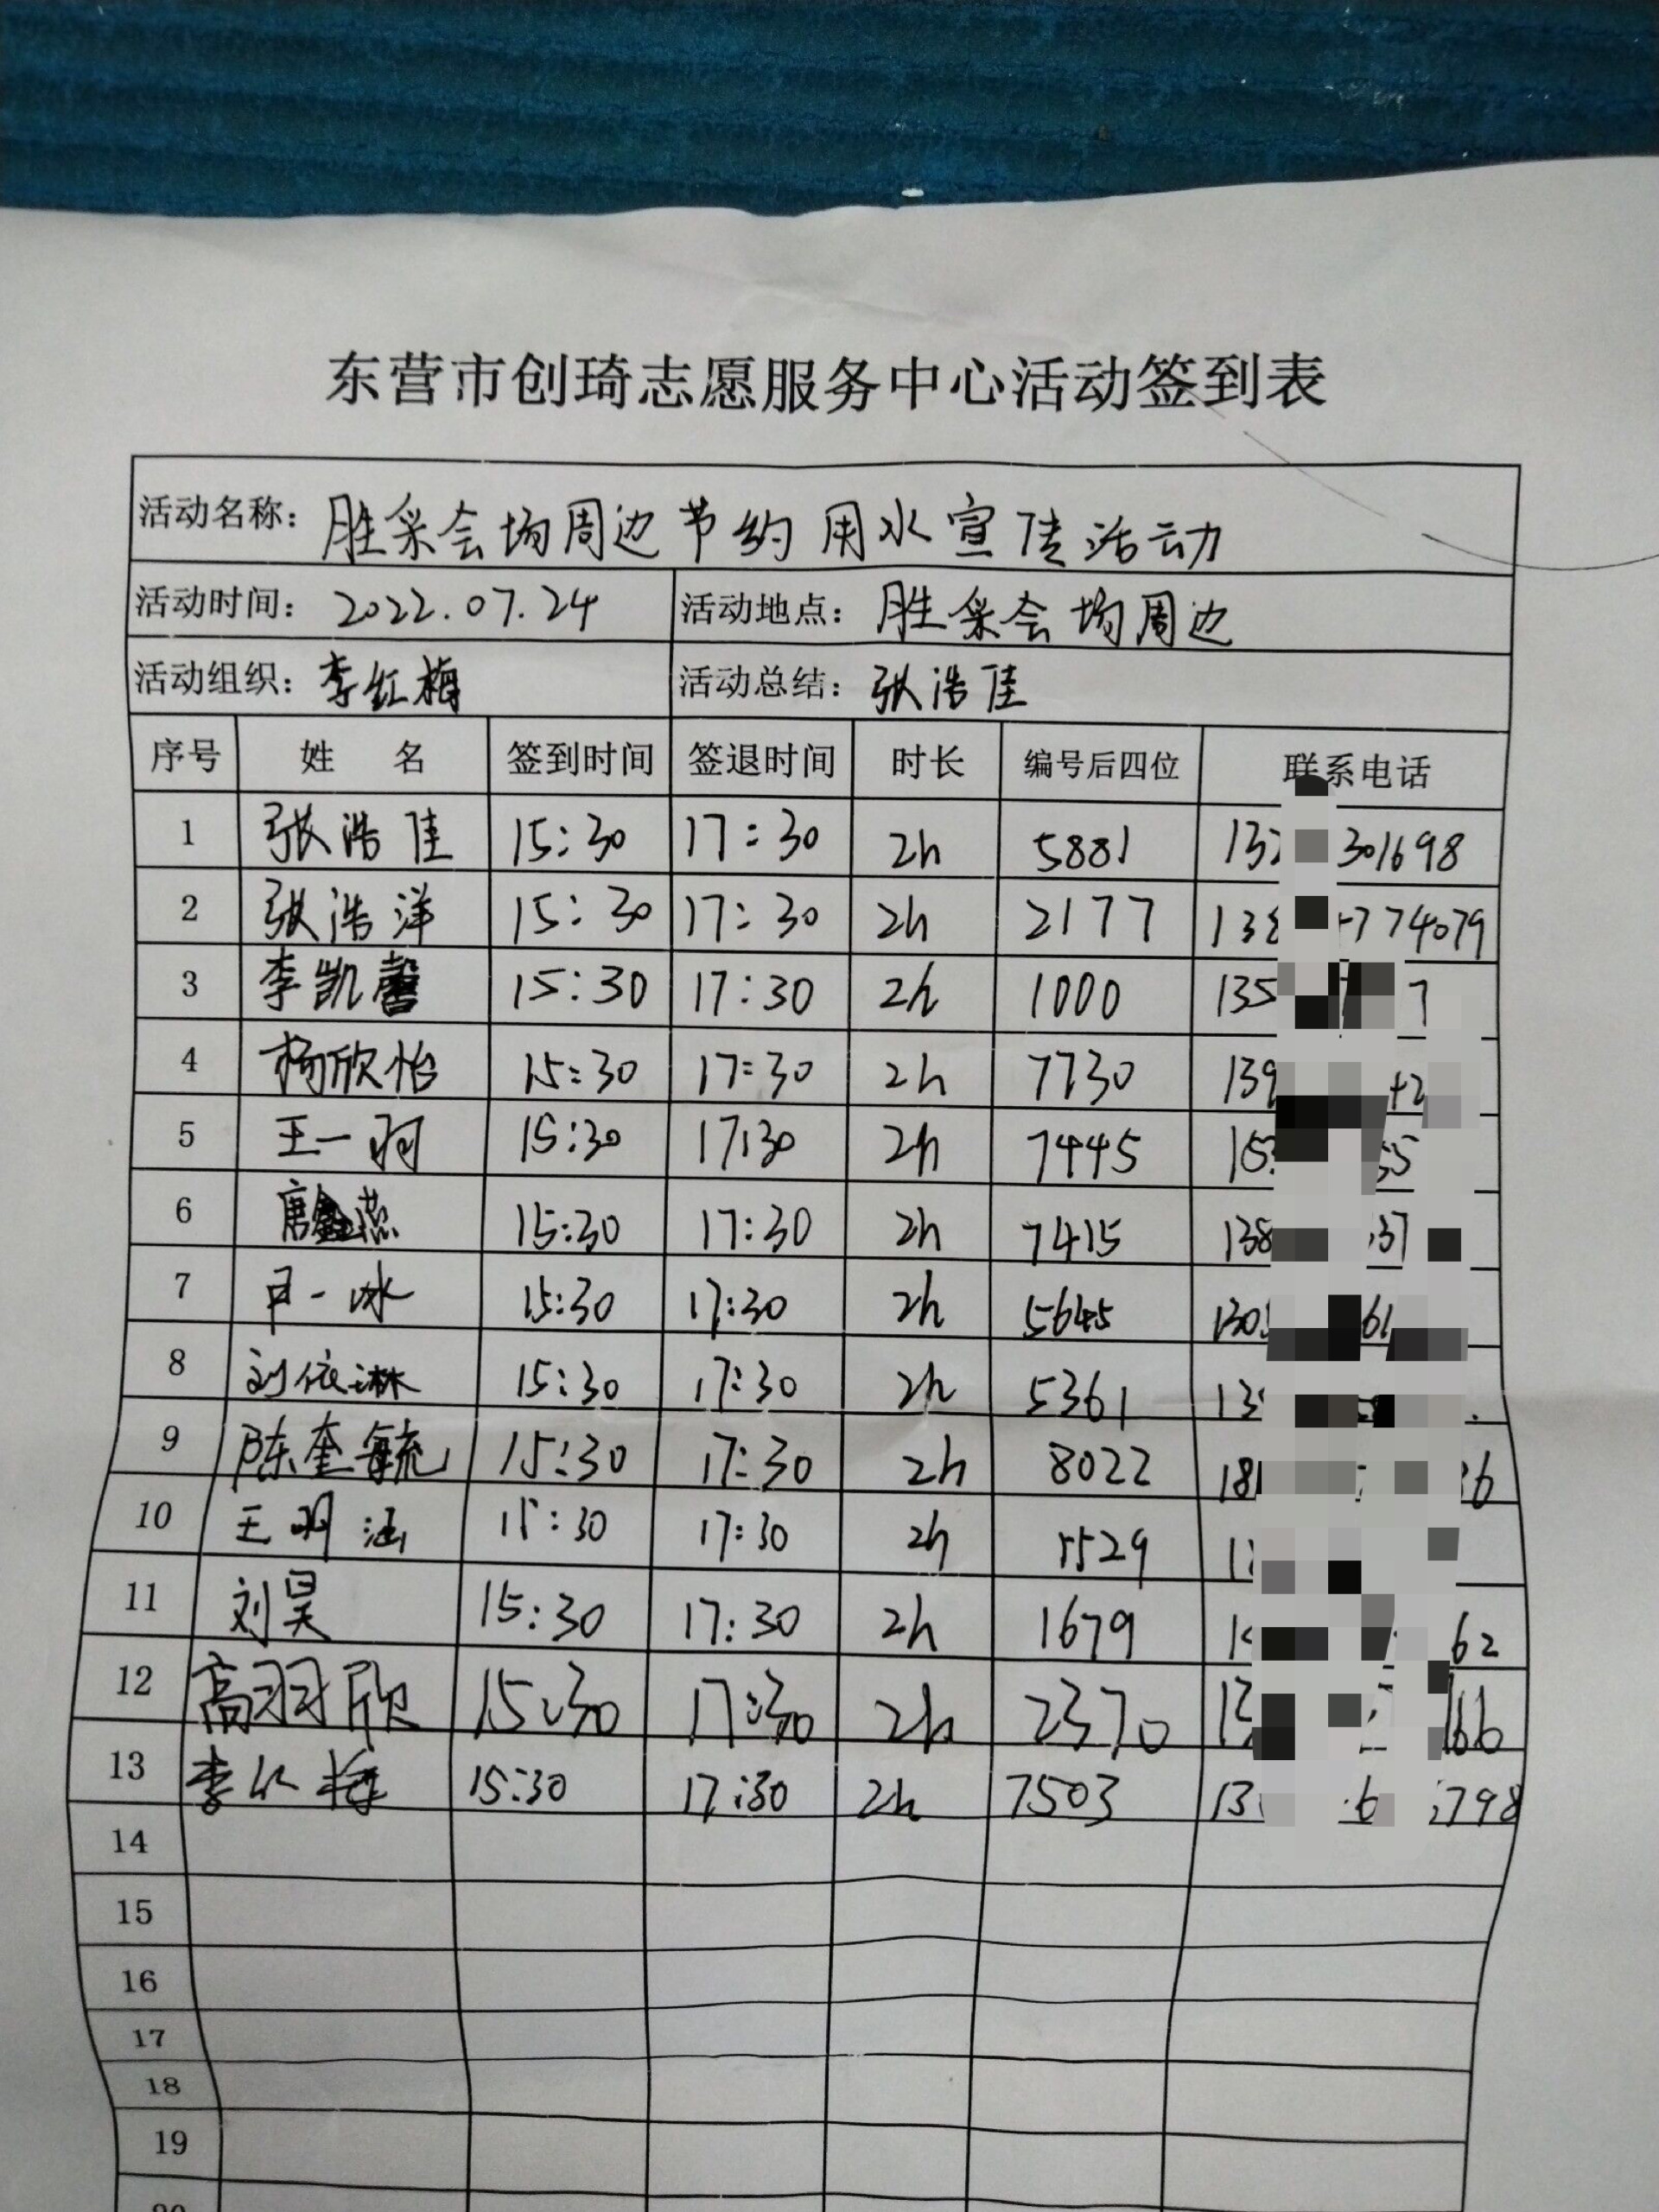 东营市创琦志愿服务中心活动签到表
活动名称：胜采会场周边节约用水宣传活动
活动时间：2022.07.24 活动地点：胜采会场周边
活动组织：李红梅 活动总结：张浩佳
序号 姓名 签到时间 签退时间 时长 编号后四位 联系电话
1 张浩佳 15:30 17:30 2h 5881
2 张浩洋 15:30 17:30 2h 2177
3 李凯馨 15:30 17:30 2h 1000
4 杨欣怡 15:30 17:30 2h 7730
5 王一 15:30 17:30 2h 7445
6 15:30 17:30 2h 7415
7 15:30 17:30 2h 5645
8 刘依琳 15:30 17:30 2h 5361
9 陈奎毓 15:30 17:30 2h 8022
10 王明涵 15:30 17:30 2h 5529
11 刘昊 15:30 17:30 2h 1679
12 高羽欣 15:30 17:30 2h 2370
13 李红梅 15:30 17:30 2h 7503
14
15
16
17
18
19